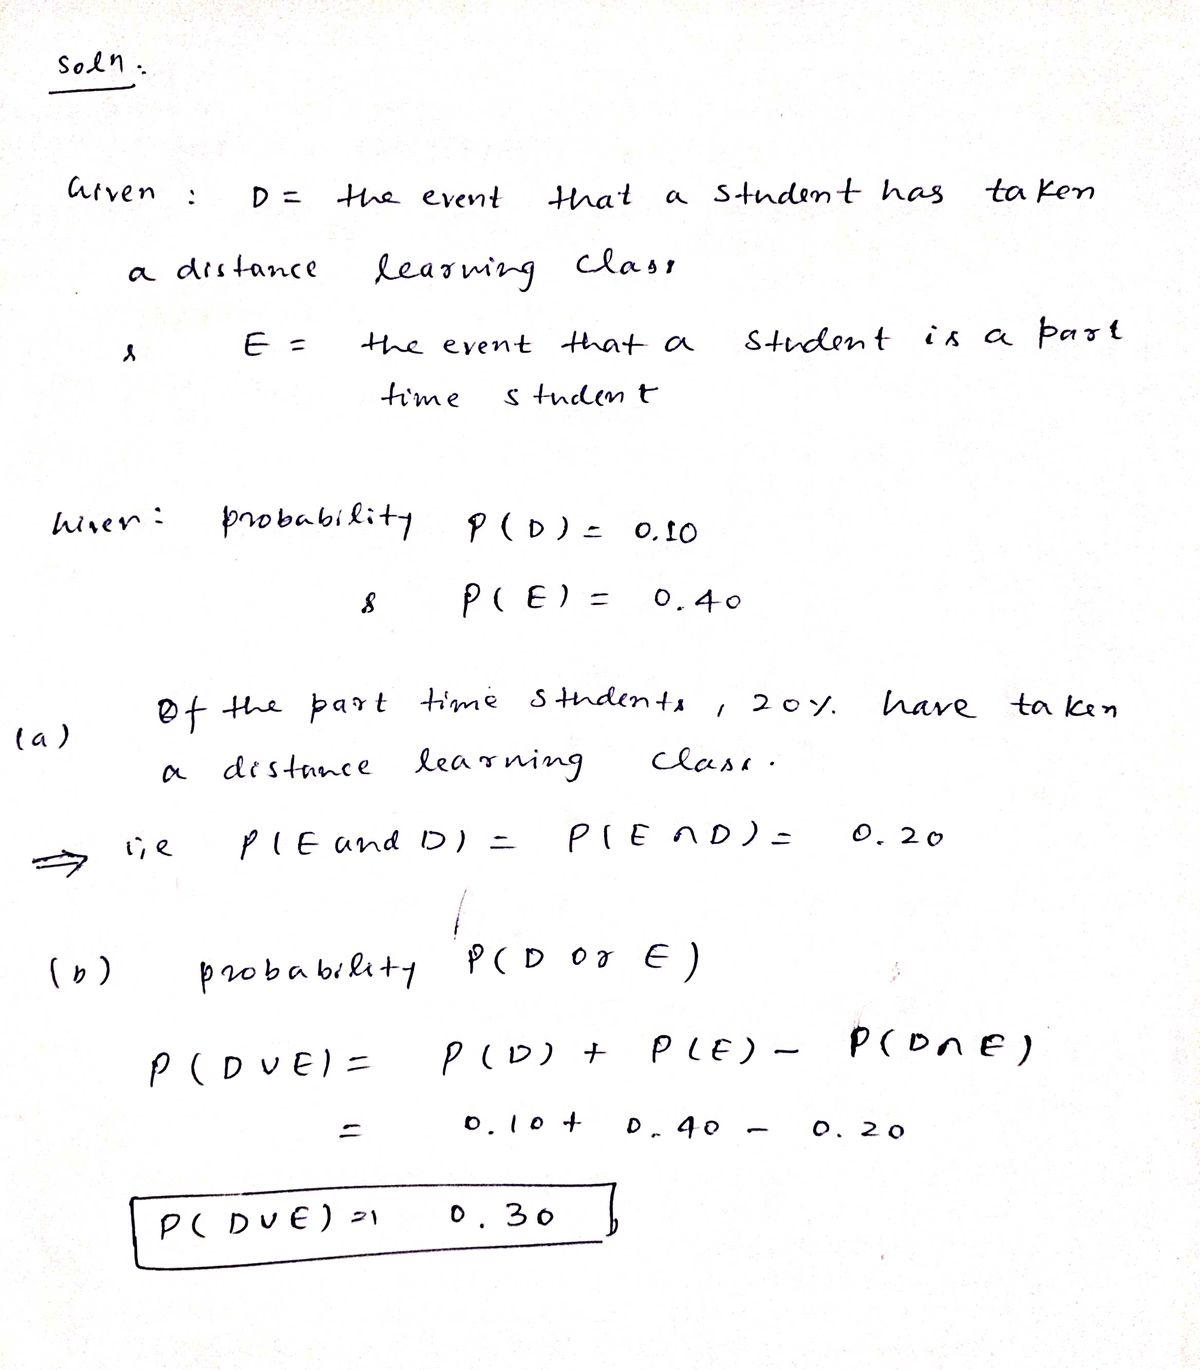 Soln :
Given : D = the event that a student has taken
a distance learning class
& E = the event that a student is a part
time student
Given : probability P(D) = 0.10
& P(E) = 0.40
(a) Of the part time students, 20% have taken
a distance learning class.
⇒ i;e P(E and D) = P(E ∩ D) = 0.20
(b) probability P(D or E)
P(D ∪ E) = P(D) + P(E) - P(D ∩ E)
= 0.10 + 0.40 - 0.20
P(D ∪ E) = 0.30